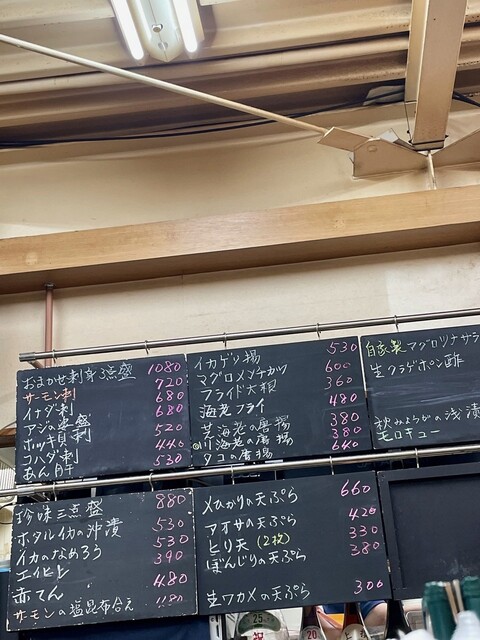 おまかせ刺身3点盛 1080
サーモン刺 720
イナダ刺 680
アジの 680
ホッキ貝刺 520
コハダ刺 440
あん肝 530
イカゲソ揚 530
マグロメンチカツ 600
フライド大根 360
海老フライ 480
芝海老の唐揚 380
川海老の唐揚 380
タコの唐揚 640
自家製マグロツナサラ
生クラゲポン酢
秋みょうがの浅漬
モロキュー
珍味三点盛 880
ホタルイカの沖漬 530
イカのなめろう 530
エイヒレ 390
赤てん 480
サーモンの塩昆布合え
メひかりの天ぷら 660
アオサの天ぷら 420
とり天(2枚) 330
ぼんじりの天ぷら 380
生ワカメの天ぷら 300
25
20